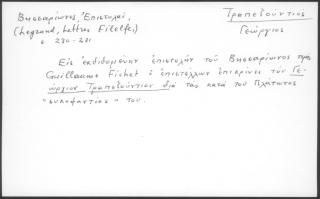 Βησσαρίωνος, Ἐπιστολαί,
(Legrand, Lettres Filelfe,)
σ 230-231
Τραπεζούντιος
Γεώργιος
Εἰς ἐκδιδομένην ἐπιστολὴν τοῦ Βησσαρίωνος πρὸς
Guillaume Fichet ὁ ἐπιστέλλων ἐπικρίνει τὸν Γε-
ώργιον Τραπεζούντιον διὰ τὰς κατὰ τοῦ Πλάτωνος
"συκοφαντίας" του.